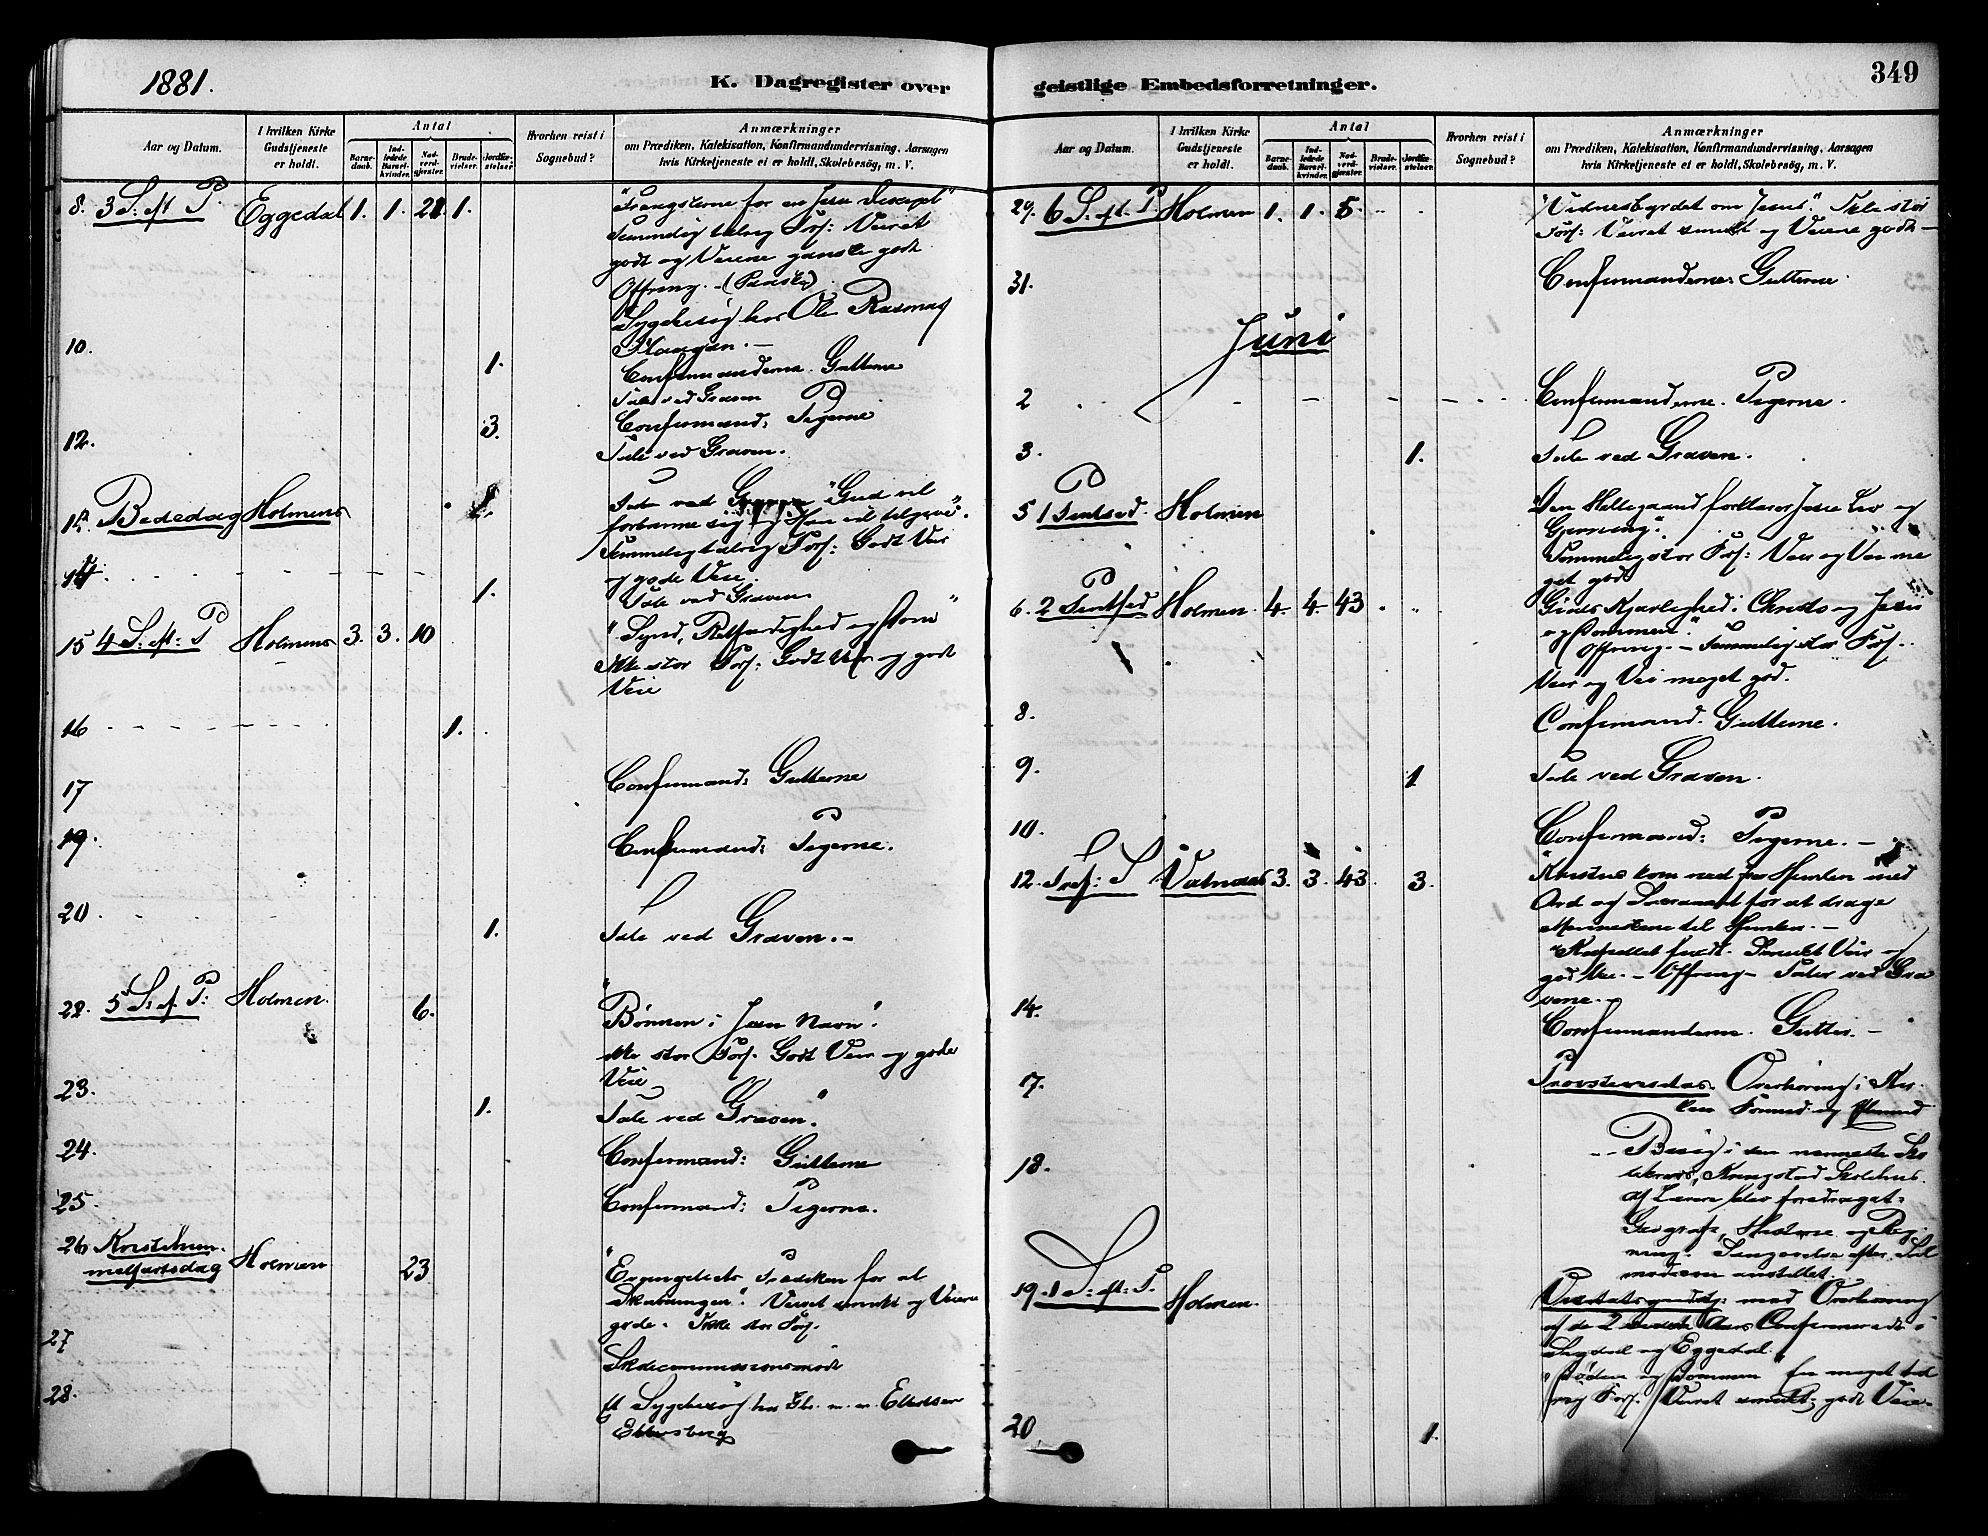 1881.
K. Dagregister over
Aar og Datum.
I hvilken Kirke Gudstjeneste er holdt.
Antal
Barnedaab.
Indledede Barselkvinder.
Nadverdgjæster.
Brudevielser.
Jordfæstelser.
Hvorhen reist i Sognebud?
Anmærkninger
om Prædiken, Katekisation, Konfirmandundervisning, Aarsagen
hvis Kirketjeneste ei er holdt, Skolebesøg, m. V.
8. 3 S: eft P. Eggedal 1. 1. 21 1. "Trængslerne for en Jesu Discipel"
Temmelig talrig Fors: Veiret
godt og Veiene ganske godt
Offring. (Paaske)
Sygebesøg hos Ole Rasmus
Haugen. —
10. 1. Confirmanderne Gutterne
Tale ved Graven
12. 3. Confirmand: Pigerne
Tale ved Graven.
Bededag Holmens Tale ved Graven "Gud vil
forbarme sig og Han vil tilgive".
Temmelig talrig Fors: Godt Veir
og gode Veie.
14. 1. Tale ved Graven
15 4 S: eft: P Holmens 3. 3. 10 "Synd, Retfærdighed og Dom"
Ikke stor Fors: Godt Veir og godt
Veie
16 1.
17 Confirmand: Gutterne
19. Confirmand: Pigerne.
20 1. Tale ved Graven. —
22. 5 S: ef. P: Holmen. 6. "Bønnen i Jesu Navn".
Ikke stor Fors. Godt Veir og gode
Veie
23. 1. Tale ved Graven.
24. Confirmand: Gutterne
25 Confirmand: Pigerne.
26 Kristihim-
melfartsdag Holmen 23 "Evangeliets Prædiken for al
Skabningen". Veiret smukt og Veiene
gode. Ikke stor Fors.
27 Skolecommissionsmøde
28. Et Sygebesøg hos Ellertsen
Ellersberg
349
geistlige Embedsforretninger.
Aar og Datum.
I hvilken Kirke Gudstjeneste er holdt.
Antal
Barnedaab.
Indledede Barselkvinder.
Nadverdgjæster.
Brudevielser.
Jordfæstelser.
Hvorhen reist i Sognebud?
Anmærkninger
om Prædiken, Katekisation, Konfirmandundervisning, Aarsagen
hvis Kirketjeneste ei er holdt, Skolebesøg, m. V.
29. 6 S. eft. P Holmen 1. 1. 5 "Vidnesbyrdet om Jesus". Ikke stor
Fors: Veiret smukt og Veiene godt —
31. Confirmanderne: Gutterne.
Juni
2 Confirmanderne. Pigerne.
3. 1. Tale ved Graven.
5 1 Pintsed. Holmen "Den Helligaand forklarer Jesu Liv og
Gjerning".
Temmelig stor Fors: Veir og Vei me
get god
6. 2 Pintsed Holmen. 4 4 43 Guds Kjærlighed i Christo og Jesu
og Dommen".
Offring. — Temmelig stor Fors.
Veir og Vei meget god.
8. Confirmand. Gutterne.
9. 1 Tale ved Graven.
10. Confirmand: Pigerne. —
12. Tref: S Vatnaas 3. 3. 43 3. "Kristus kom ned fra Himlen med
Ord og Sacrament for at drage
Menneskene til Himlen. —
Kapellet fuldt. Smukt Veir og
god Vei. — Offring — Taler ved Gra
vene. —
14. Confirmanderne. Gutter. —
17. Provstevisitas. Overhøring i Kir-
ken Formid: og Eftermid
18. Besøg i den nærmeste Sko
lekreds, Kringstad Skolehus.
af Læren blev foredraget
Geografi, Historie og Reg
ning. Sangøvelse efter Sal
modicon anstillet.
19. 1 S: eft: P. Holmen. Visitatsgudstj: med Overhøring
af de 2 sidste Aars Confirmerede i
Sigdal og Eggedal.
"Døden og Dommen" En meget tal
rig Fors. Veiret smukt, godt Veie.
20 1.